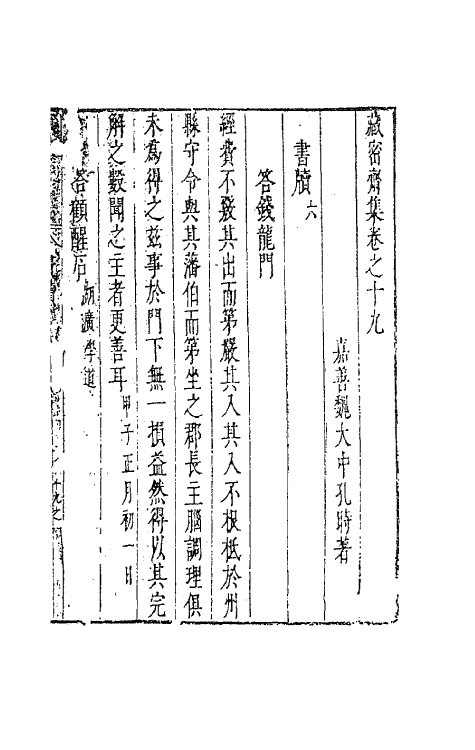 藏密齋集卷之十九
嘉善魏大中孔時著
書牘六
答錢龍門
經費不發其出而第嚴其入其入不根柢於州
縣守令與其藩伯而第坐之郡長主腦調理俱
未為得之茲事於門下無一損益然得以其完
解之數聞之主者更善耳甲子正月初一日
答顧醒
學道